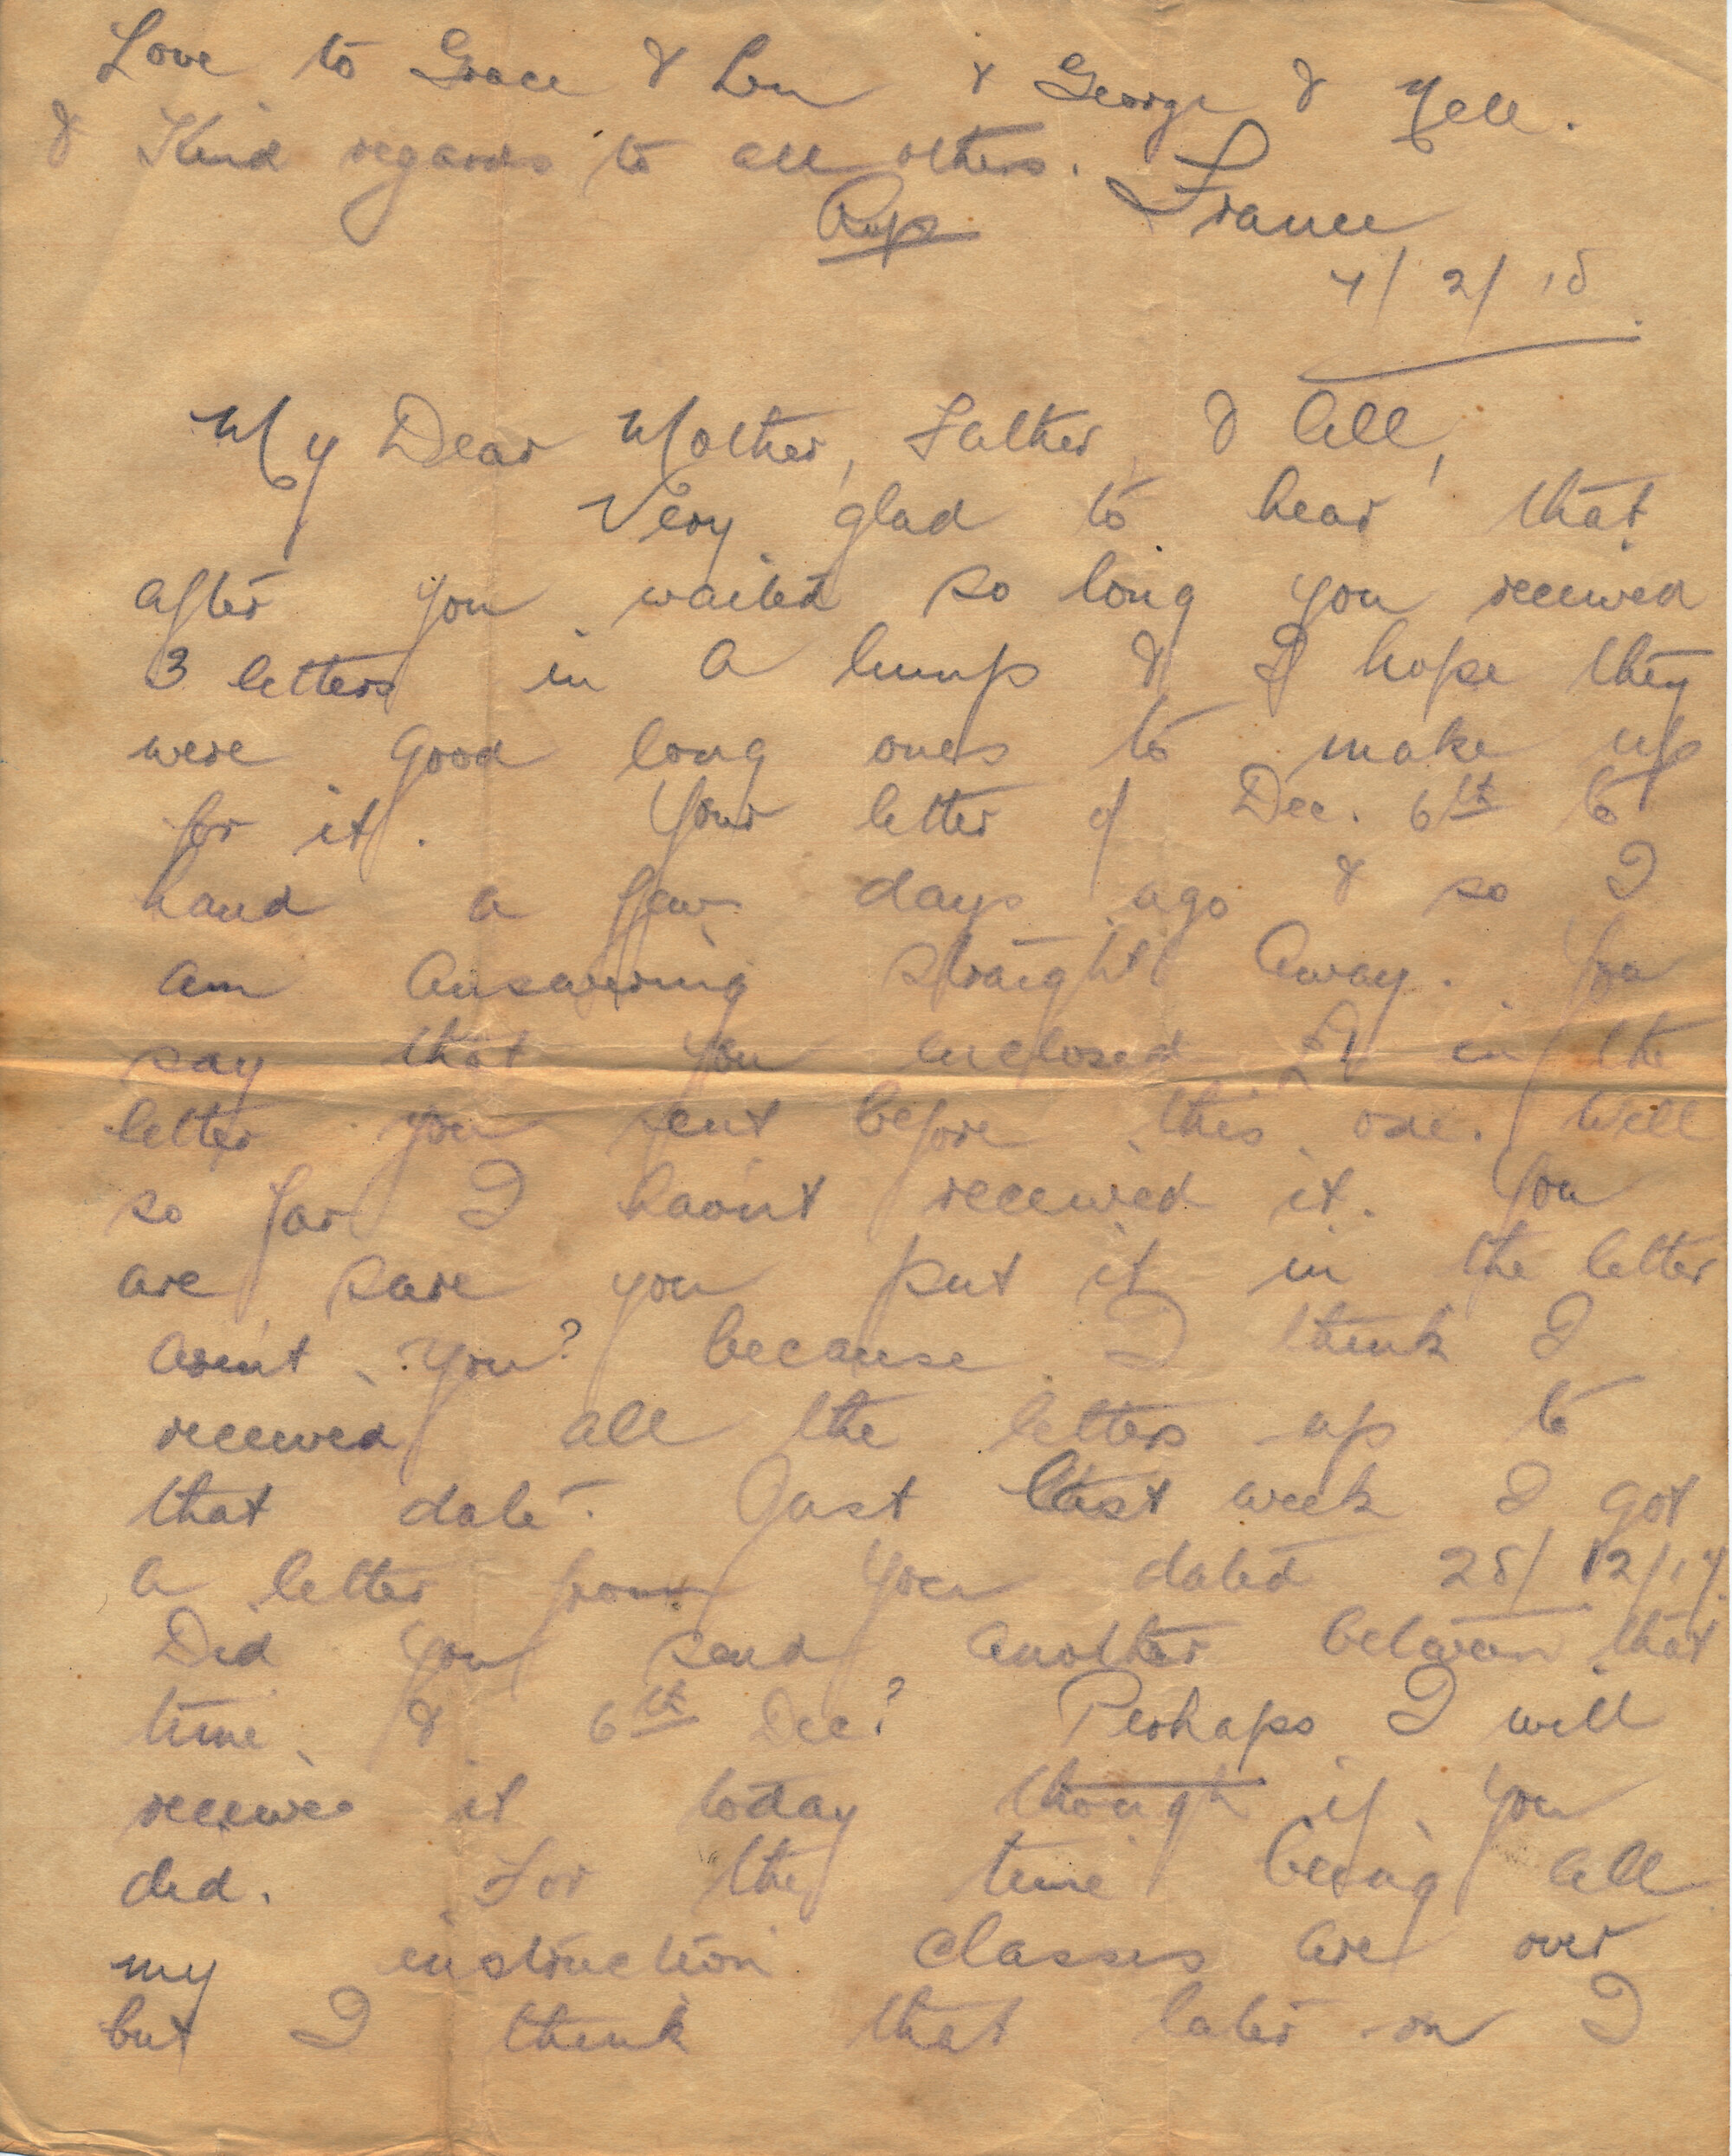 Love to Grace & Len & George & Nell.
& Kind regards to all others.
Rup
France
4/2/18
My Dear Mother, Father & All,
Very glad to hear that
after you waited so long you received
3 letters in a lump & I hope they
were good long ones to make up
for it. Your letter of Dec. 6th to
hand a few days ago & so I
am answering straight away. You
say that you enclosed in the
letter you sent before this one. Well
so far I havn't received it. You
are sure you put it in the letter
aren't you? because I think I
received all the letters up to
that date. Just last week I got
a letter from you dated 28/12/17.
Did you send another between that
time & 6th Dec? Perhaps I will
receive it today though if you
did. For the time being all
my instruction classes are over
but I think that later on I